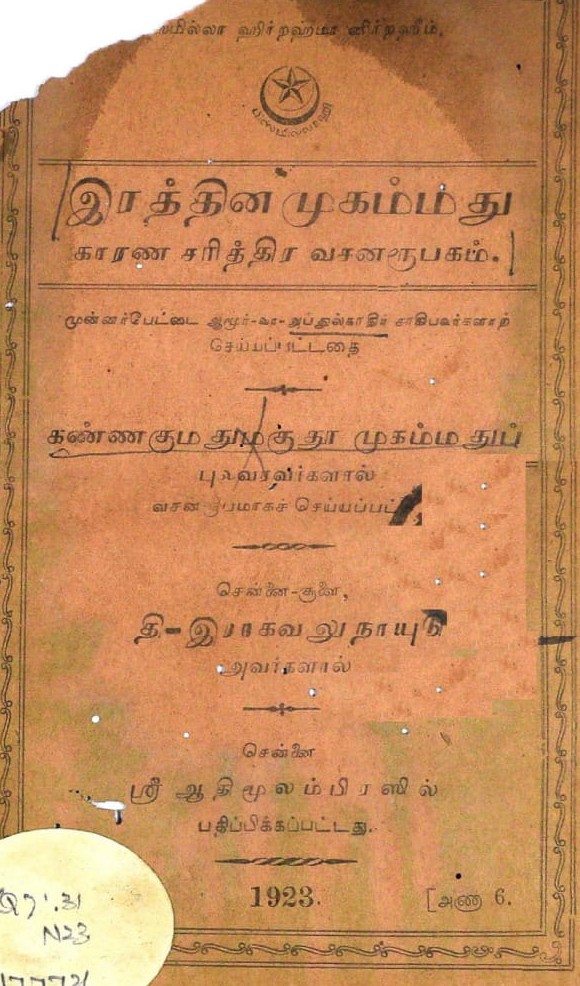 ஹிற்றஹ்மா னிற்றஹீம்.
பிஸ்மில்லாஹி
இரத்தின முகம்மது
காரண சரித்திர வசனரூபகம்.
முன்னர்பேட்டை ஆமூர்-வா-அப்துல்காதிர் சாகிபவர்களாற்
செய்யப்பட்டதை
கண்ணகுமதுமகுதூ முகம்மதுப்
புலவரவர்களால்
வசனரூபமாகச்
சென்னை-சூளை,
தி-இராகவலு நாயுடு
அவர்களால்
சென்னை
ஸ்ரீ ஆதிமூலம்பிரஸில்
பதிப்பிக்கப்பட்டது.
1923. [அணா 6.
N23